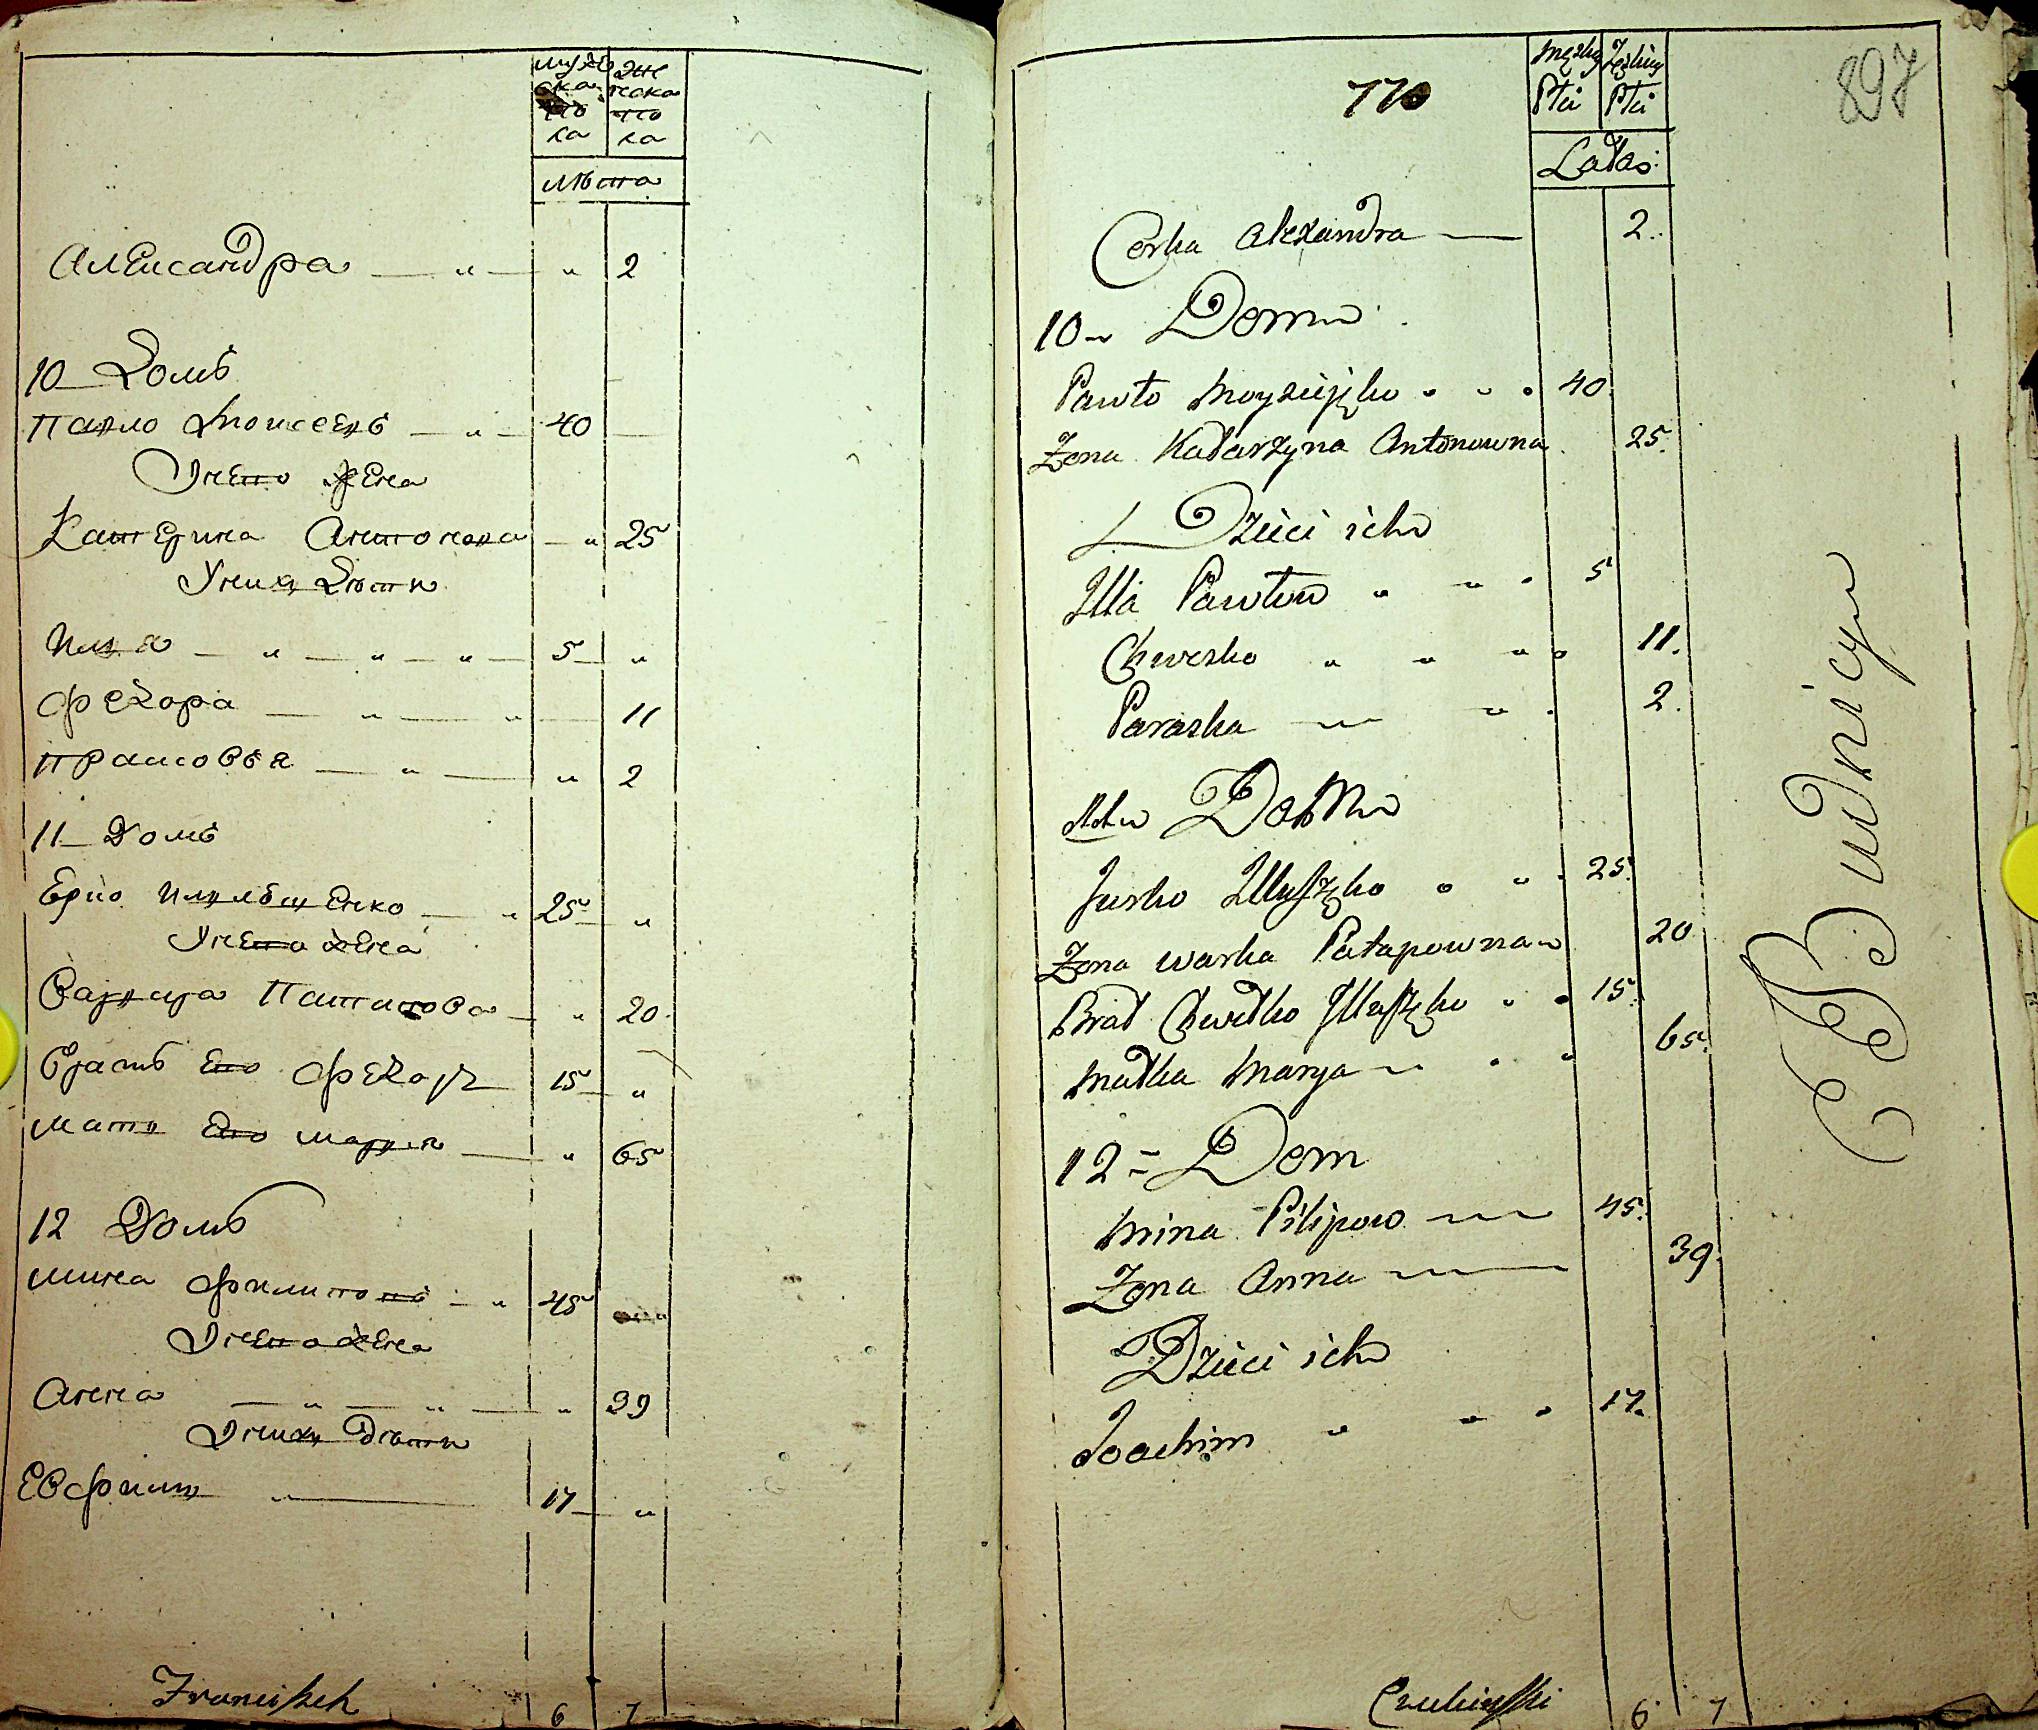 мужеска пола
женска пола
лѣта
Александра — „ — „ 2
10 Домъ
Павло Моисеевъ — „ — 40 —
У него жена
Катерина Антонова — „ 25
У них дѣти
Илия — „ — „ — „ — 5 — „
Федора — „ — „ — 11
Прасковья — „ — „ 2
11 Домъ
У него жена
Варвара — „ 20
братъ его Федоръ 15 — „
мати его Мария — „ 65
12 Домъ
Мина Филиповъ — „ 45
У него жена
Анна — „ — „ — „ 39
У них дѣти
17 — „
Franciszek 6 7
770
897
męzkiey Płci
Żeńskiey Płci
Latas
Corka Alexandra — 2.
10 Dom
Pawło Moyzieięko „ „ „ 40
Żona Katarzyna Antonowna 25.
Dzieci ich
Illa Pawłow „ „ „ 5
Chwesko „ „ „ 11.
Paraska — „ 2.
11 Dom
Jusko „ „ 25.
Żona Warka Patapowna 20
Brat Chwedko „ „ 15.
Matka Marya „ „ 65.
12 = Dom
Mina Pilipow — 45.
Żona Anna — 39.
Dzieci ich
Joachim „ „ „ 17.
6 7
Budnicyu